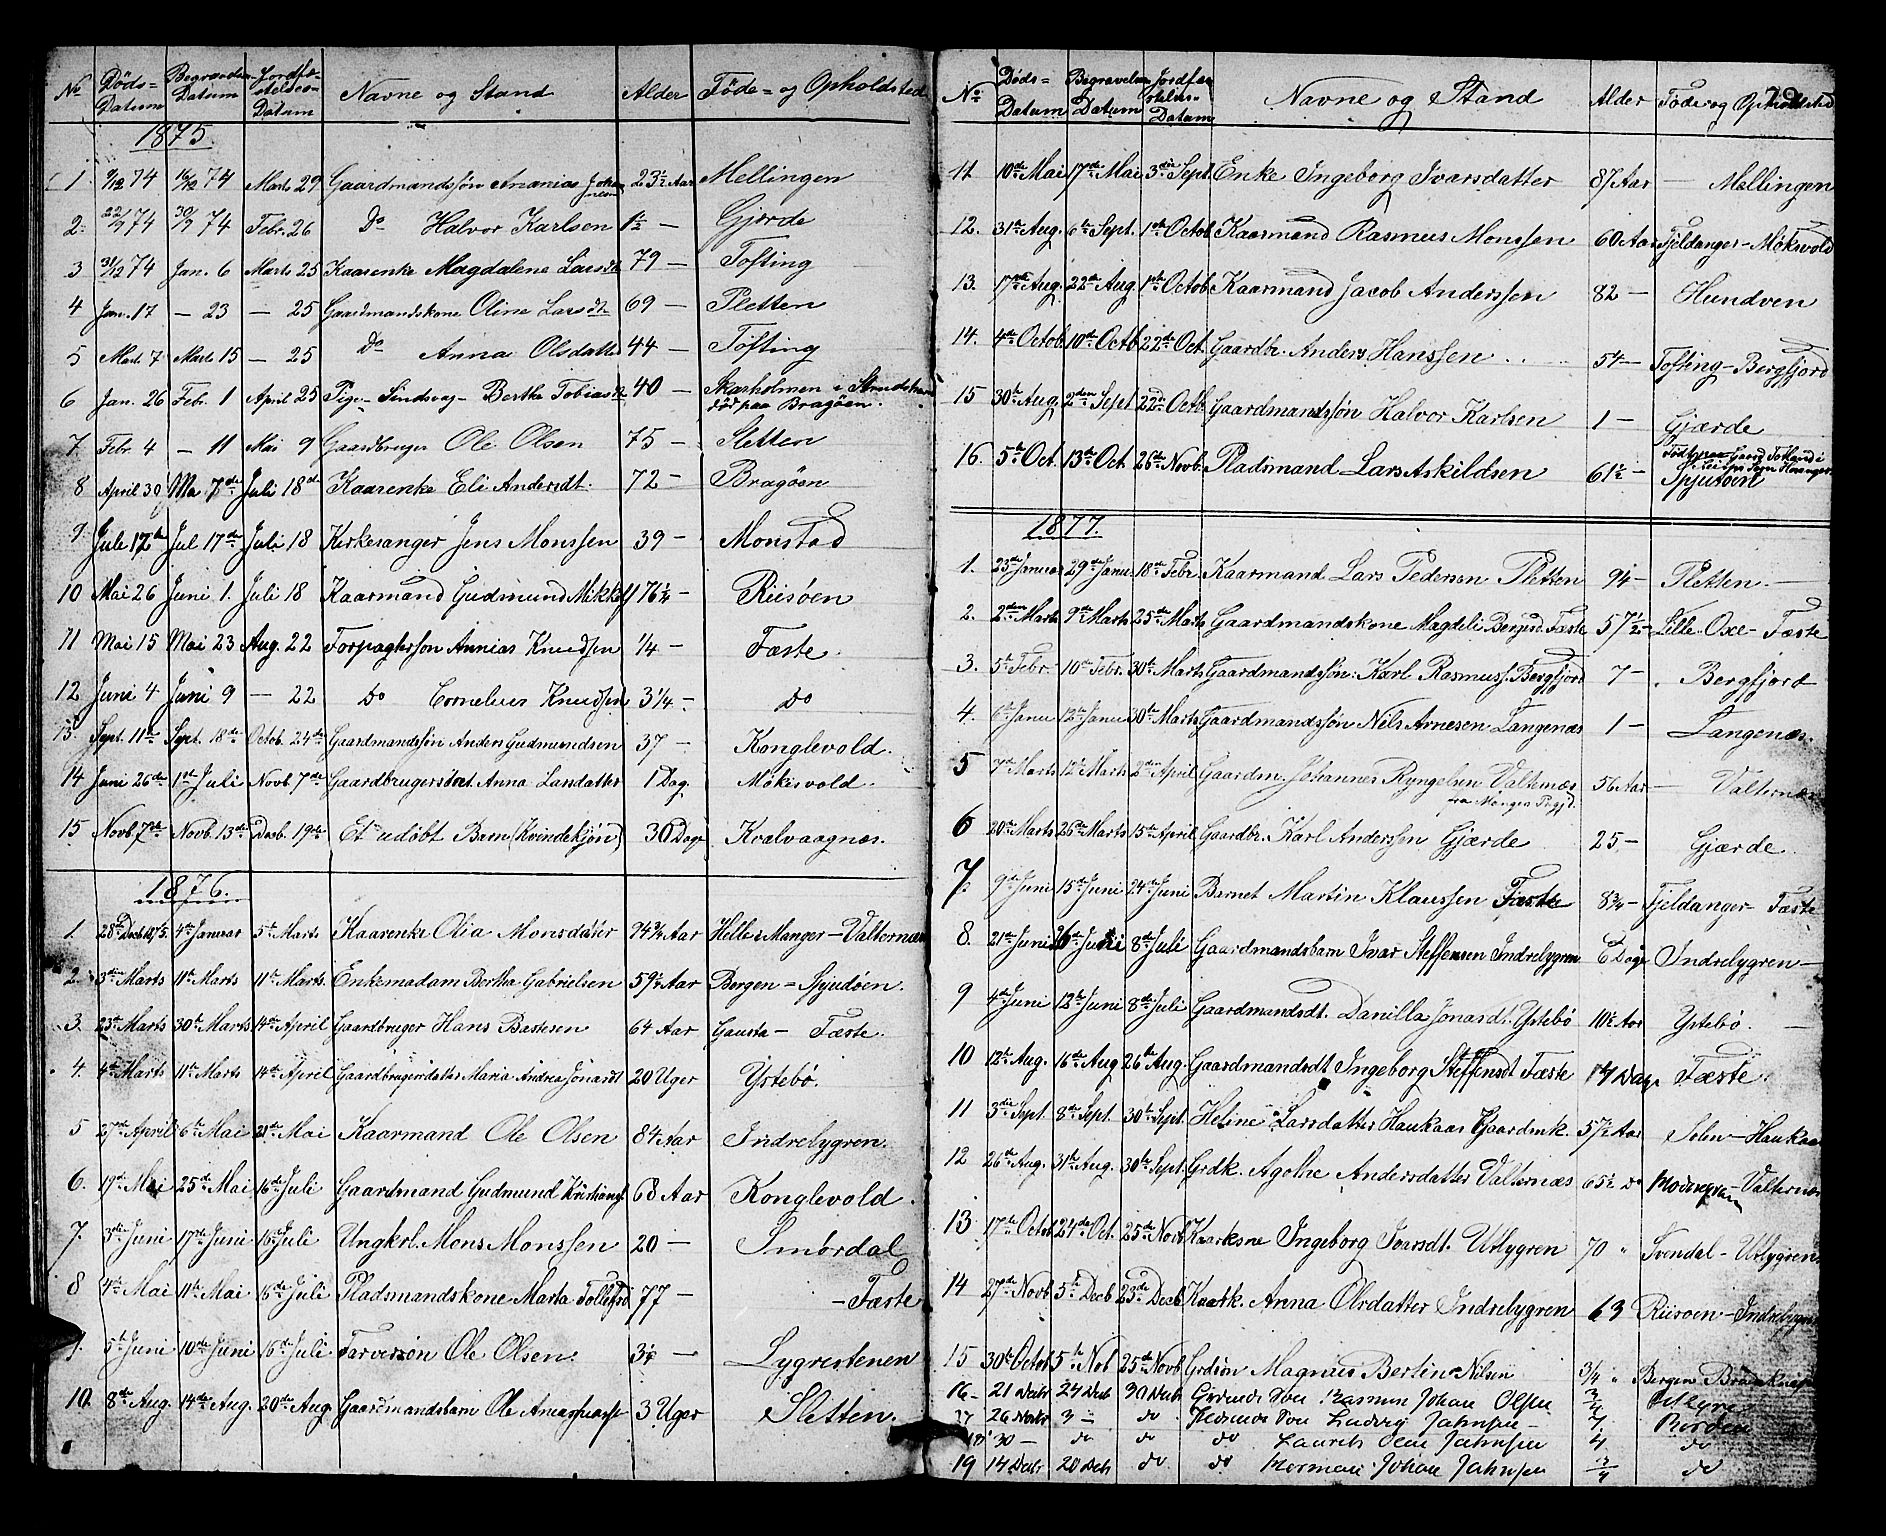 No Døds= Datum Begravelse Datum Jordfæstelses= Datum Navne og Stand Alder Føde= og Opholdsted
1875
1 9/12 74 16/12 74 Marts 29 Gaardmandssøn Ananias 23½ Aar Mellingen
2 22/9 74 30/9 74 Febr. 26 Do Halvor Karlsen 1½ — Gjerde
3 31/12 74 Jan. 6 Marts 25 Kaarenke Magdalene Larsdt 79 — Tofting
4 Jan. 17 — 23 — 25 Gaardmandskone Oline Larsdt 69 — Sletten
5 Marts 7 Marts 15 — 25 Do Anna Olsdatter 44 — Tofting
6 Jan. 26 Febr. 1 April 25 Pige Sindssvag Berthe Tobiasdt 40 — Skarholmen i
død paa Bragøen.
7 Febr. 4 — 11 Mai 9 Gaardbruger Ole Olsen 75 — Sletten
8 April 30 Ma 7de Juli 18de Kaarenke Eli Andersdt. 72 — Bragøen
9. Juli 12te Jul 17de Juli 18 Kirkesanger Jens Monssen 39 — Monstad
10 Mai 26 Juni 1. Juli 18 Kaarmand Gudmund Mikkels 76¼ — Riisøen
11 Mai 15 Mai 23 Aug. 22 Forpagtersøn Annias Knudsen ¼ — Fæste
12 Juni 4 Juni 9 — 22 Do Cornelius Knudsen 3¼ — Do
13 Sept. 11te Sept. 18de Octob. 24de Gaardmandssøn Anders Gudmundsen 37 — Konglevold.
14 Juni 26de 1st Juli Novb. 7de Anna Larsdatter 1 Dag. Mökisvold
15 Novb. 7de Novb. 13de Decb. 19te Et udøbt Barn (Kvindekjøn) 30 Dage Kvalvaagnes.
1876.
1. 28de Decb. 1875. 4de Januar 5te Marts Kaarenke Olia Monsdatter 74¾ Aar Helle i Manger — Valternæs
2. 3die Marts 11te Marts 11te Marts. Enkemadam Bertha Gabrielsen 59½ Aar Bergen = Spjudøen.
3. 23de Marts 30te Marts 14de April Gaardbruger Hans Bestesen 64 Aar Gausta — Fæste.
4. 4de Marts 11te Marts 14de April Gaardbrugerdatter Maria Andrea Jonasdt 20 Uger Ystebø.
5 27de April 6te Mai 21de Mai Kaarmand Ole Olsen 84 Aar Indrelygren.
6. 19de Mai 25de Mai 16de Juli Gaardmand Gudmund Kristians 68 Aar Konglevold.
7. 3die Juni 17de Juni 16de Juli Ungkrl. Mons Monssen 20 — Smørdal
8 4de Mai 11te Mai 16de Juli Pladsmandskone Marta Tollefsd 77 — — Fæste
9. 5te Juni 10de Juni 16de Juli Ole Olsen. — Lygrestenen
10. 8de Aug. 14de Aug. 20de Aug. Gaardmandsbarn Ole 3 Uger Sletten.
79
No Døds= Datum Begravelse Datum Jordfæstelses= Datum Navne og Stand Alder Føde og Opholdsted
11. 10de Mai 17de Mai 3die Sept. Enke Ingeborg Ivarsdatter 87 Aar — Mellingen
12. 31te Aug. 6te Sept. 1ste Octob Kaarmand Rasmus Monssen 60 Aar Fjeldanger — Mökisvold
13. 17de Aug. 22de Aug 1ste Octob Kaarmand Jacob Anderssen 82 — Hundven
14. 4de Octob. 10de Octb 22de Oct. Gaardbr. Anders Hanssen 54 — Tofting — Bergfjord
15 30te Aug. 2den Sept 22de Octb Gaardmandssøn Halvor Karlsen 1 — Gjærde
16. 5te Oct. 13de Oct. 26de Novb. Pladsmand Lars Askildsen 61½ — Født paa Gaard
Spjutøen
1877.
1. 23de Januar 29de Janu. 18de Febr. Kaarmand Lars Pedersen Sletten 94 — Sletten —
2. 2den Marts 9de Marts 25de Marts Gaardmandskone Magdeli Bergesd. Fæste 57½ — Lille-Oxe — Fæste
3. 5te Febr. 10de Febr. 30te Marts Gaardmandssøn: Karl Rasmuss. Bergfjord 7 — Bergfjord
4. 6te Janu 12te Janu 30te Marts Gaardmandssøn Nels Arnesen Langenæs 1 — Langenæs.
5 7de Marts 12te Marts 2den April Gaardm. Johannes Ryngelsen Valternæs 56 Aar — Valternæs
fra Manger Pregjd.
6 20de Marts 26de Marts 15de April Gaardbr. Karl Anderssen Gjærde 25 — Gjærde
7. 9de Juni 15de Juni 24de Juni Barnet Martin Klaussen Fæste 8¾ — Fjeldanger — Fæste
8. 21de Juni 26de Juni 8de Juli Gaardmandsbarn Ivar Steffensen Indrelygren 6 Dage Indrelygren —
9 4de Juni 12te Juni 8de Juli Gaardmandsdt. Danilla Jonasdt. Ystebø 10½ Aar Ystebø. —
10 12te Aug. 16de Aug 26de Aug. Gaardmandsdt Ingeborg Steffensdt Fæste 14 Dage Fæste.
11 3die Sept. 8de Sept. 30te Sept. Heline Larsdatter Haukaas Gaardmk. 57½ Aar Solen — Haukaas
12 26de Aug. 31te Aug. 30te Sept. Grdk. Agothe Andersdatter Valternæs 65½ Do — Valternæs
13 17de Octob 24de Oct. 25de Novb Kaarksne Ingeborg Ivarsdt. Utlygren 70 " Svendal — Utlygren
14 27de Novb 5te Decb 23de Decb Kaark. Anna Olsdatter Indrelygren 63 Riisøen — Indrelygren
15 30te Octob 5te Nob 25de Novb Grdsøn Magnus Bertin Nilsen 3/4 " Bergen
16 — 21 Decbr 24 Decb 30 Decb Rasmus Johan Olsen 3/4 Utlygre
17 26 Novbr 3 — do Søn Ludvig Johnsen 7
18 30 — do do do Laurits Olai Johnsen 4 do
19 14 Decbr 20 Decb do do Herman Johan Johnsen 3/4 do